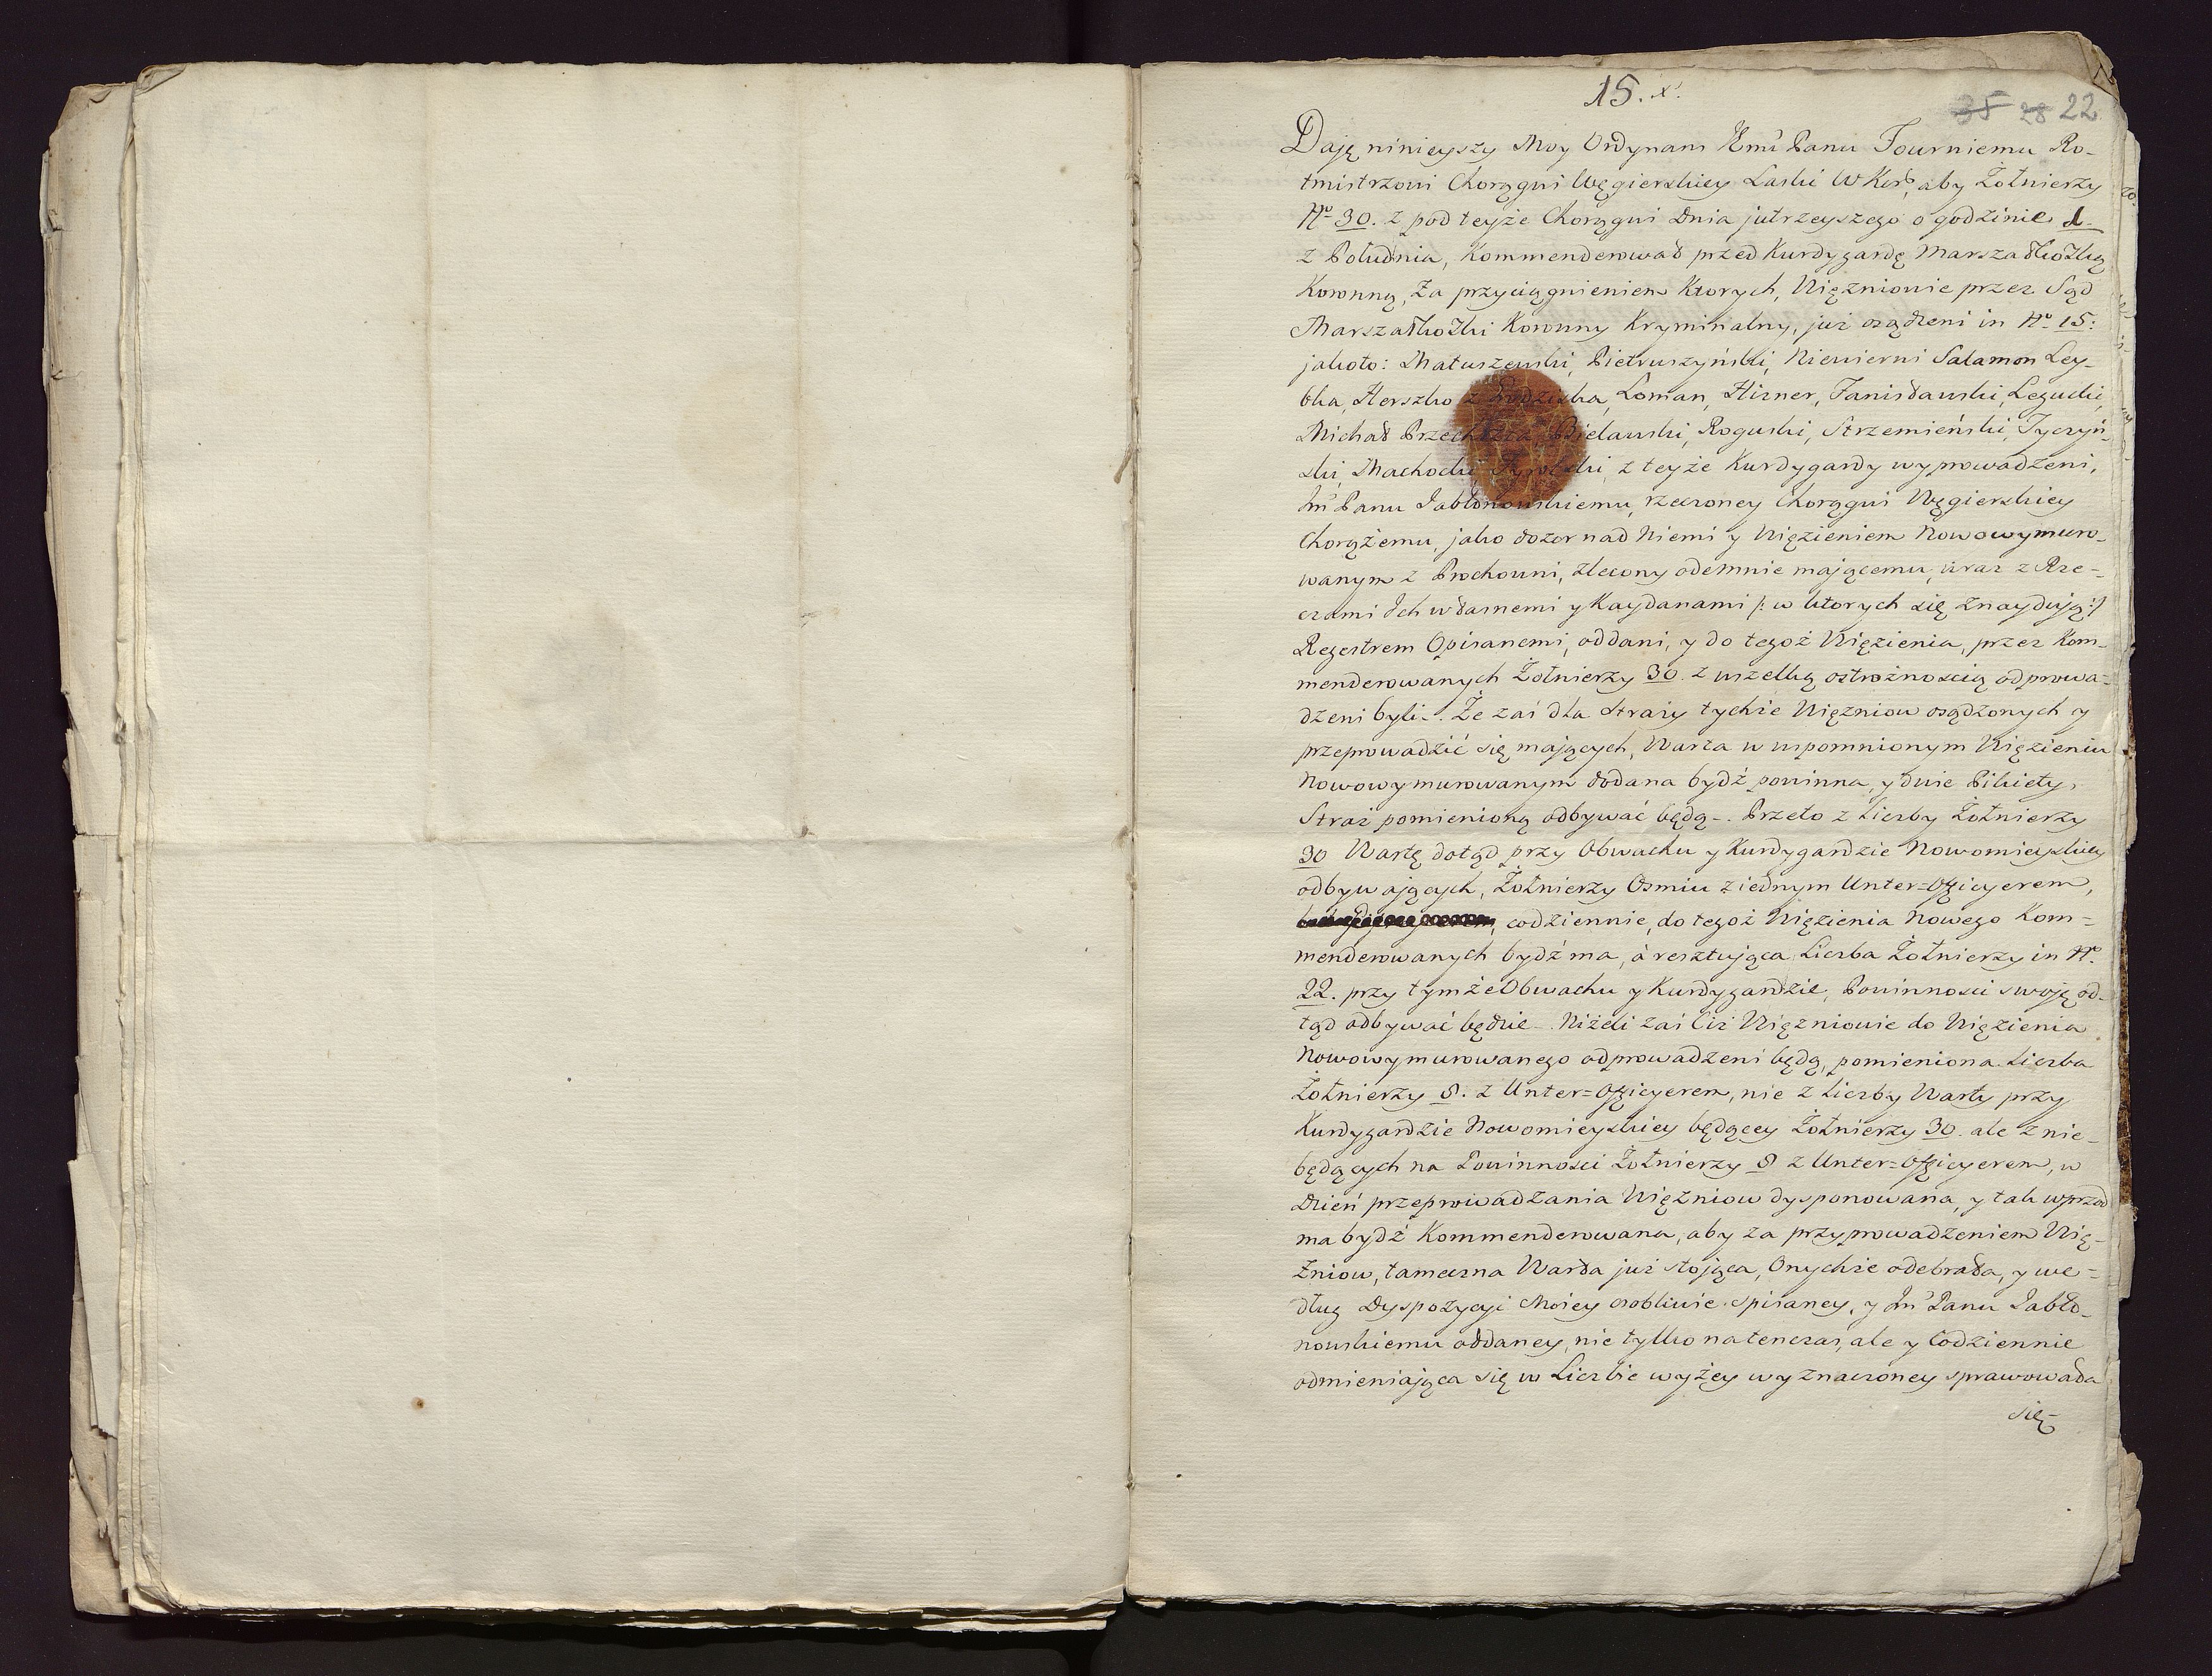 15. x.
35 28 22
Daję ninieyszy Moy Ordynans Panu Fourniemu Ro-
tmistrzowi Chorągwi Węgierskiey Laski WKor, aby Żołnierzy
Nº 30. z pod teyże Chorągwi dnia jutrzeyszego o godzinie 1-
z Południa, Kommenderował przed Kurdygardę Marszałkowską
Koronną, Za przyciągnieniem Ktorych, Więzniowie przez Sąd
Marszałkowski Koronny Kryminalny, już osądzeni in Nº 15:
jakoto: Matuszewski, Pietruszyński, Niewierni Salamon Ley-
bka, Herszko z Loman, Hizner, Janisławski, Leguski,
Michał Bielawski, Roguski, Strzemieński, Tyczyń-
ski, Machocki z teyże Kurdygardy wyprowadzeni,
Jm̃ Panu Jabłonowskiemu, rzeczoney Chorągwi Węgierskiey
Chorążemu, jako dozor nad Niemi y Więzieniem Nowowymuro-
wanym z Prochowni, zlecony odemnie mającemu, wraz z Rze-
czami Ich własnemi y Kaydanami /: w ktorych się znaydują :/
Regestrem Opisanemi, oddani, y do tegoż Więzienia, przez Kom-
menderowanych Żołnierzy 30. z wszelką ostrożnoscią odprowa-
dzeni byli-. Że zaś dla straży tychże Więzniow osądzonych y
przeprowadzić się mających, Warta w wspomnionym Więzieniu
Nowowymurowanym dodana bydź powinna, y dwie Pikiety,
Straż pomienioną odbywać będą-. Przeto z Liczby Żołnierzy
30 Wartę dotąd przy Obwachu y Kurdygardzie Nowomieyskiey
odbywających, Żołnierzy Osmiu z iednym Unter=Officyerem,
codziennie, do tegoż Więzienia Nowego Kom-
menderowanych bydź ma, á resztująca Liczba Żołnierzy in Nº
22. przy tymże Obwachu y Kurdygardzie, Powinnosci swoję od-
tąd odbywać będzie-. Niżeli zaś Ciż Więzniowie do Więzienia
Nowowymurowanego odprowadzeni będą, pomieniona Liczba
Żołnierzy 8. z Unter=Officyerem, nie z Liczby Warty przy
Kurdygardzie Nowomieyskiey będącey Żołnierzy 30. ale z nie-
będących na Powinnosci Żołnierzy 8 z Unter=Officyerem, w
Dzień przeprowadzania Więzniow dysponowana, y tak wprzod
ma bydź Kommenderowana, aby za przyprowadzeniem Wię-
zniow, tameczna Warta już stojąca, Onychże odebrała, y we-
dług Dyspozycyi Moiey osobliwie spisaney, y Jm̃ Panu Jabło-
nowskiemu oddaney, nie tylko natenczas, ale y Codziennie
odmieniająca się w Liczbie wyżey wyznaczoney sprawowała
się-